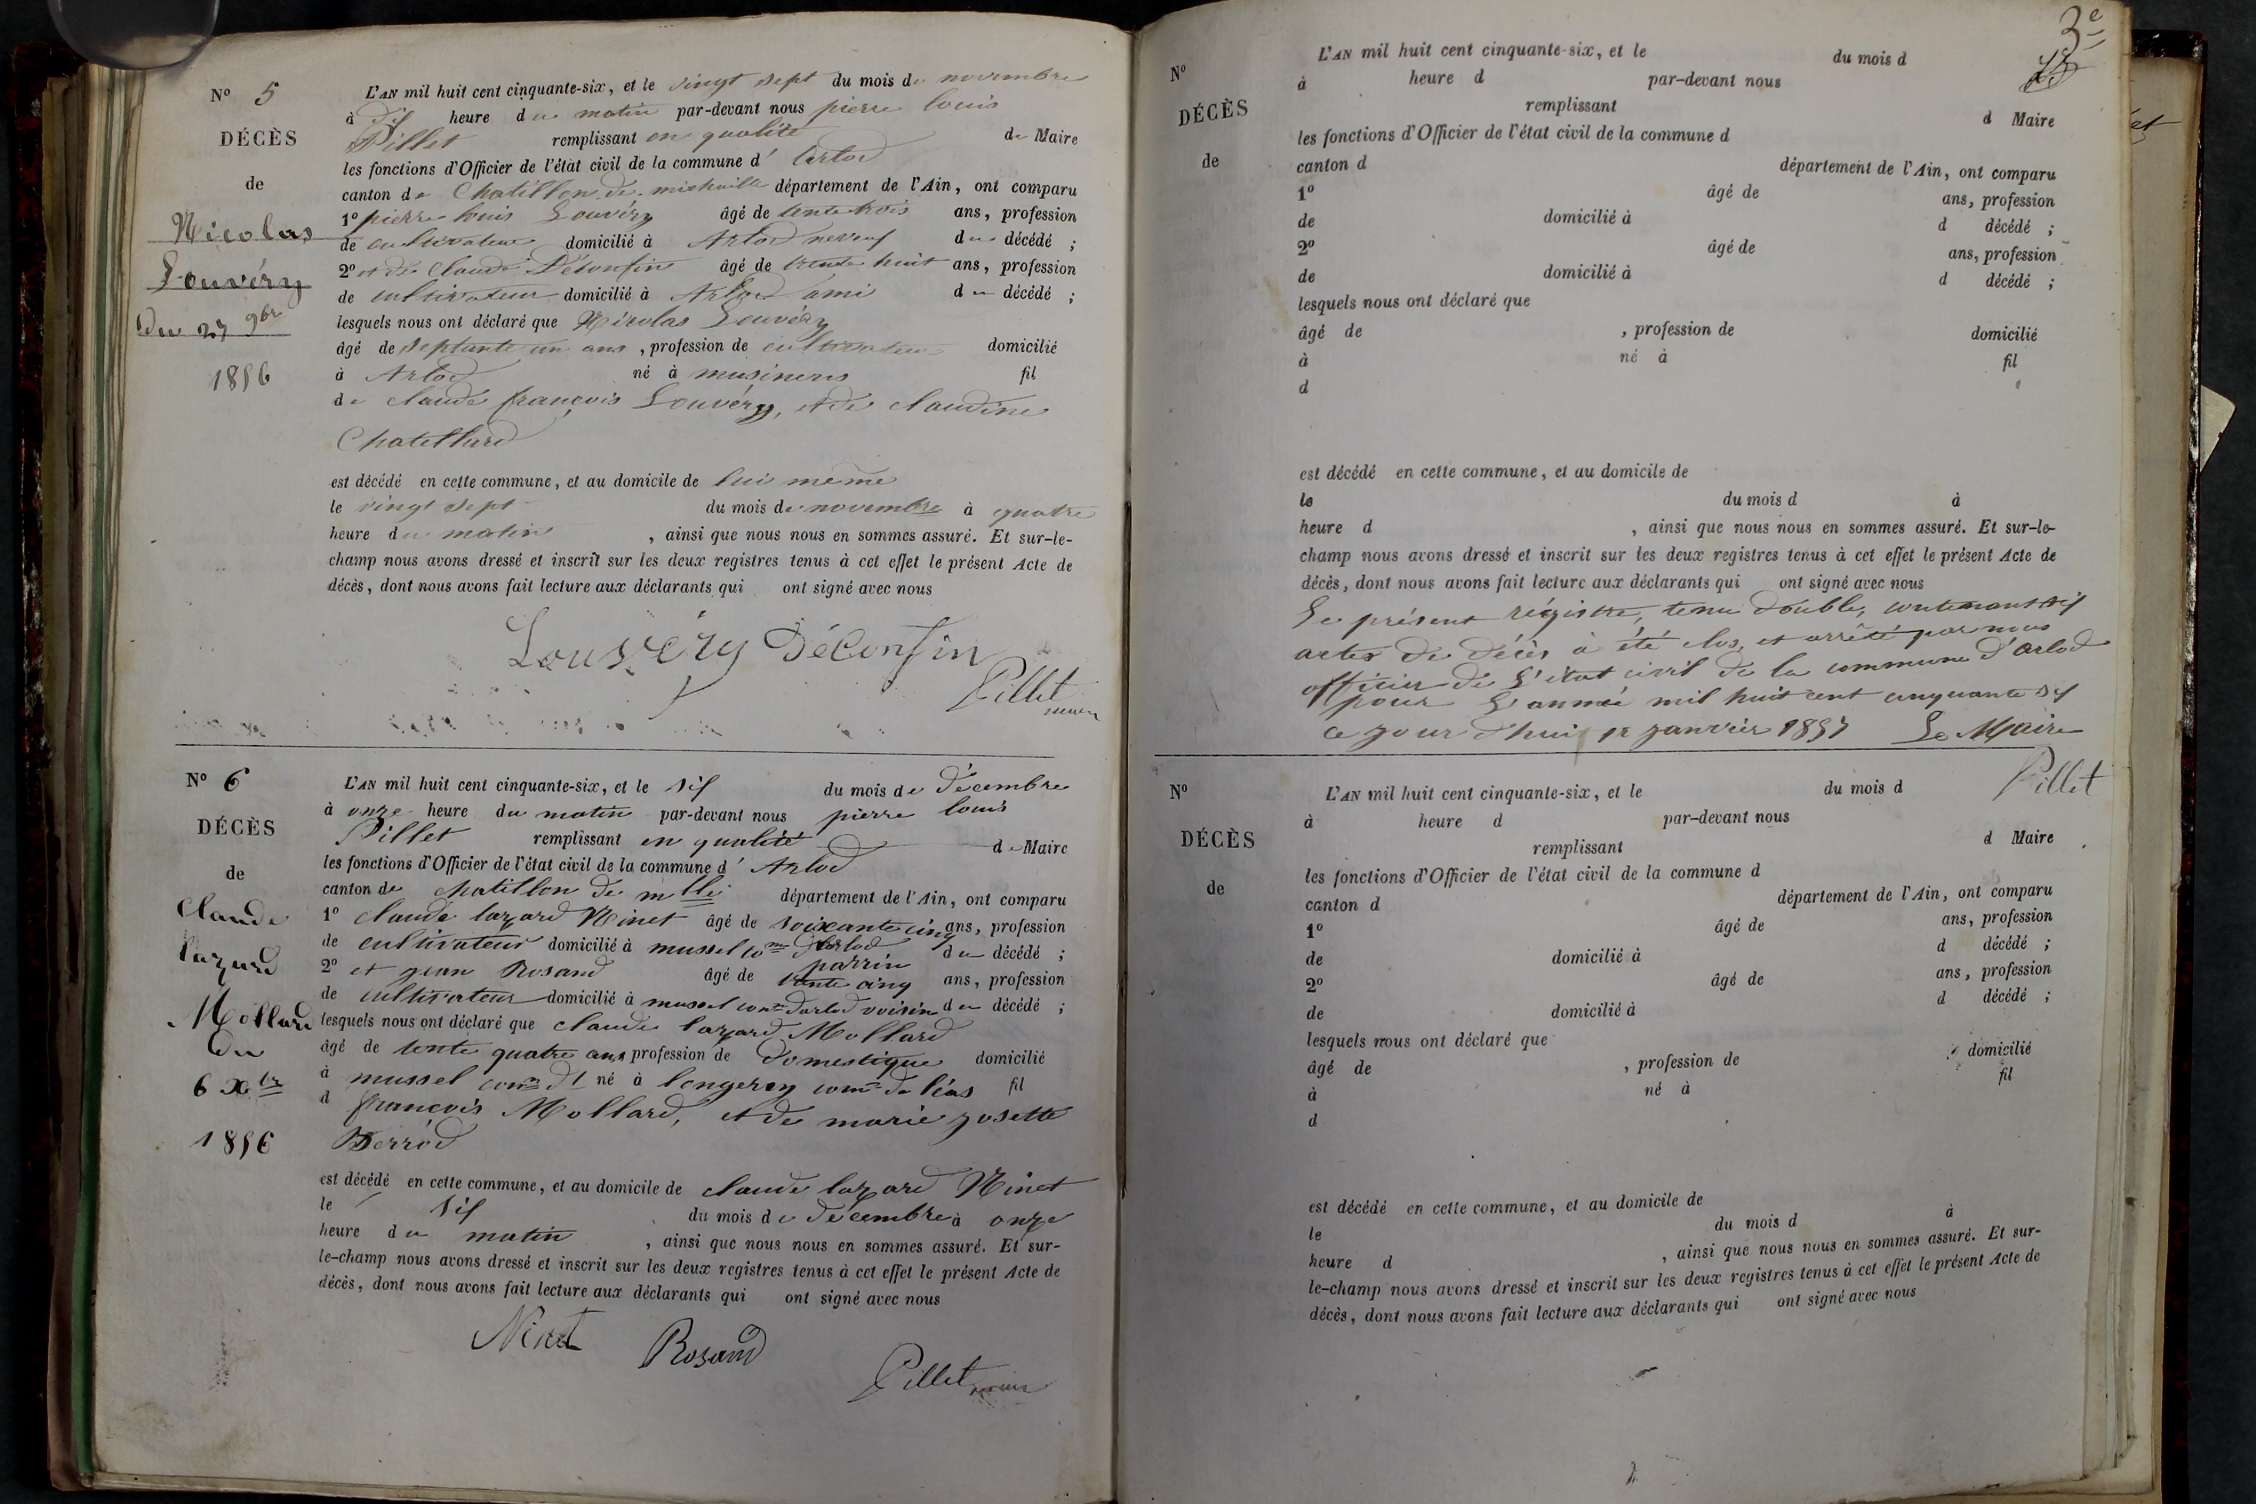 N° 5
DÉCÈS
de
Nicolas
Louvéry
Du 27 9bre
1856
L'AN mil huit cent cinquante-six, et le vingt sept du mois de novembre
à dix heure du matin par-devant nous pierre louis
Pillet remplissant en qualité de Maire
les fonctions d'Officier de l'état civil de la commune d' Arlod
canton de Chatillon de michaille département de l'Ain, ont comparu
1° pierre louis Louvéry âgé de trente trois ans, profession
de cultivateur domicilié à Arlod neveuf du décédé ;
2° et de Claude Déconfin âgé de trente huit ans, profession
de cultivateur domicilié à Arlod ami du décédé ;
lesquels nous ont déclaré que Nicolas Louvéry
âgé de septante un ans, profession de cultivateur domicilié
à Arlod né à musinens fil
de claude françois Louvéry, et de claudine
Chatellard
est décédé en cette commune, et au domicile de lui même
le vingt sept du mois de novembre à quatre
heure du matin, ainsi que nous nous en sommes assuré. Et sur-le-
champ nous avons dressé et inscrit sur les deux registres tenus à cet effet le présent Acte de
décès, dont nous avons fait lecture aux déclarants qui ont signé avec nous
Louvéry Déconfin
Pillet
maire
N° 6
DÉCÈS
de
Claude
lazard
Mollard
Du
6 Xbre
1856
L'AN mil huit cent cinquante-six, et le six du mois de décembre
à onze heure du matin par-devant nous pierre louis
Pillet remplissant en qualité de Maire
les fonctions d'Officier de l'état civil de la commune d' Arlod
canton de chatillon de mlle département de l'Ain, ont comparu
1° claude lazard Ninet âgé de soixante cinq ans, profession
de cultivateur domicilié à mussel com d'Arlod parrin du décédé ;
2° et jean Rosand âgé de trente cinq ans, profession
de cultivateur domicilié à mussel com d'arlod voisin du décédé ;
lesquels nous ont déclaré que claude lazard Mollard
âgé de trente quatre ans profession de domestique domicilié
à mussel com dt né à longeray com de léas fil
d françois Mollard, et de marie josette
Berrod
est décédé en cette commune, et au domicile de claude lazard Ninet
le six du mois de décembre à onze
heure du matin, ainsi que nous nous en sommes assuré. Et sur-
le-champ nous avons dressé et inscrit sur les deux registres tenus à cet effet le présent Acte de
décès, dont nous avons fait lecture aux déclarants qui ont signé avec nous
Ninet Rosand
Pillet maire
3e
N°
DÉCÈS
de
L'AN mil huit cent cinquante-six, et le du mois d
à heure d par-devant nous
remplissant d Maire
les fonctions d'Officier de l'état civil de la commune d
canton d département de l'Ain, ont comparu
1° âgé de ans, profession
de domicilié à d décédé ;
2° âgé de ans, profession
de domicilié à d décédé ;
lesquels nous ont déclaré que
âgé de , profession de domicilié
à né à fil
d
est décédé en cette commune, et au domicile de
le du mois d à
heure d , ainsi que nous nous en sommes assuré. Et sur-le-
champ nous avons dressé et inscrit sur les deux registres tenus à cet effet le présent Acte de
décès, dont nous avons fait lecture aux déclarants qui ont signé avec nous
Le présent régistre, tenu double, contenant six
actes de décès à été clos, et arrêté par nous
officier de l'état civil de la commune d'Arlod
pour l'année mil huit cent cinquante six
ce jour d'hui 1er janvier 1857 Le Maire
Pillet
N°
DÉCÈS
de
L'AN mil huit cent cinquante-six, et le du mois d
à heure d par-devant nous
remplissant d Maire
les fonctions d'Officier de l'état civil de la commune d
canton d département de l'Ain, ont comparu
1° âgé de ans, profession
de domicilié à d décédé ;
2° âgé de ans, profession
de domicilié à d décédé ;
lesquels nous ont déclaré que
âgé de , profession de domicilié
à né à fil
d
est décédé en cette commune, et au domicile de
le du mois d à
heure d , ainsi que nous nous en sommes assuré. Et sur-
le-champ nous avons dressé et inscrit sur les deux registres tenus à cet effet le présent Acte de
décès, dont nous avons fait lecture aux déclarants qui ont signé avec nous